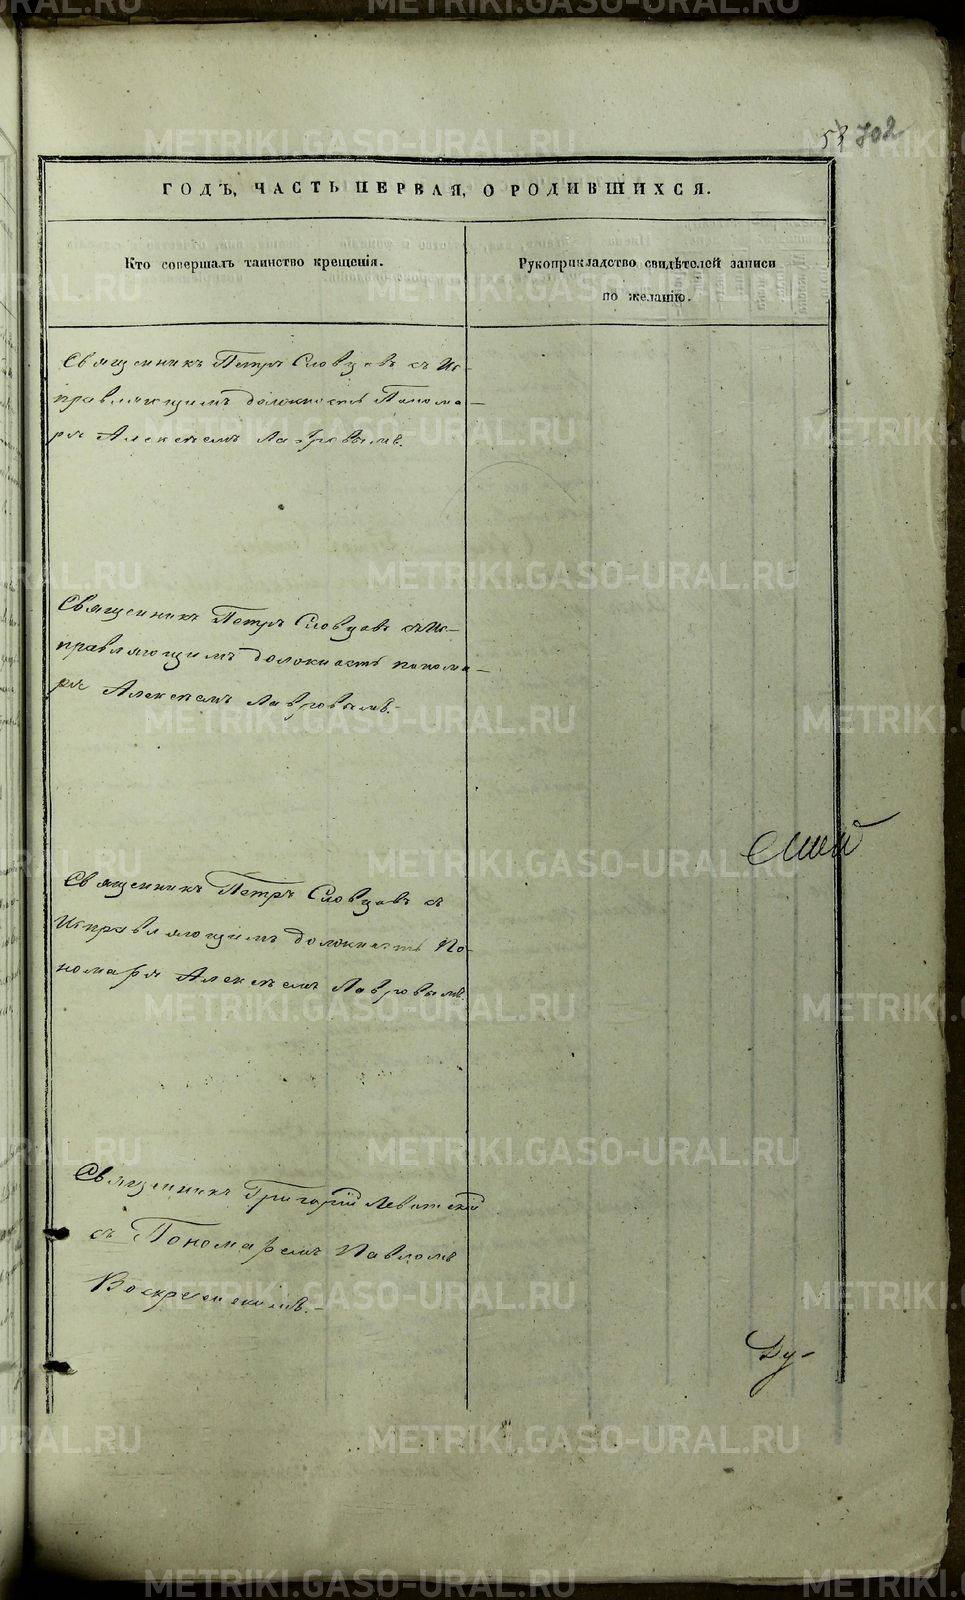 53 702
ГОДЪ, ЧАСТЬ ПЕРВАЯ, О РОДИВШИХСЯ.
Кто совершалъ таинство крещенія.
Рукоприкладство свидѣтелей записи
по желанію.
Священникъ Петръ Словцовъ съ Ис-
правляющимъ должность Понома-
ря Алексѣемъ Лавровымъ.
Священникъ Петръ Словцовъ съ Ис-
правляющимъ должность понома-
ря Алексѣемъ Лавровымъ.-
Священникъ Петръ Словцовъ съ
Исправляющимъ должность По-
номаря Алексѣемъ Лавровымъ.
Священникъ Григорій Левитскій
съ Пономаремъ Павломъ
Воскресенскимъ.-
Ду-
METRIKI.GASO-URAL.RU